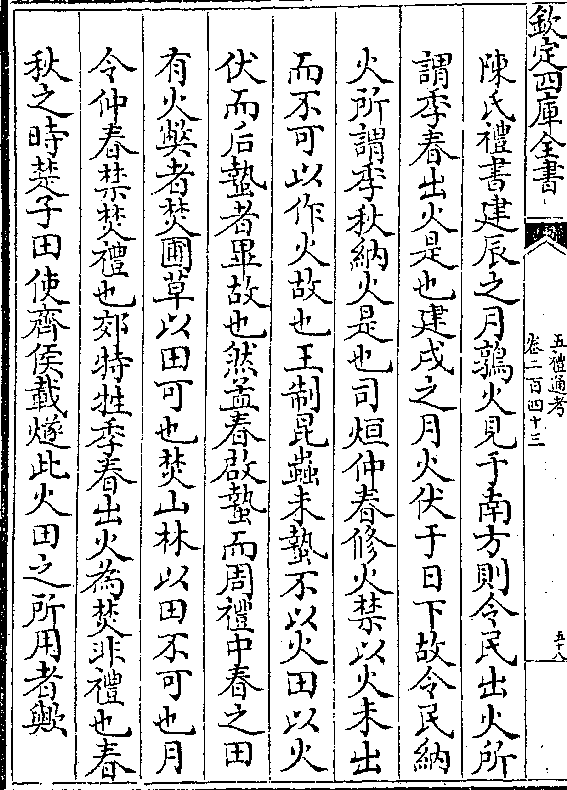 欽定四庫全書
五禮通考
卷二百四十三
五十八
陳氏禮書建辰之月鶉火見于南方則令民出火所
謂季春出火是也建戌之月火伏于日下故令民納
火所謂季秋納火是也司烜仲春修火禁以火未出
而不可以作火故也王制昆蟲未蟄不以火田以火
伏而后蟄者畢故也然孟春啟蟄而周禮中春之田
有火弊者焚圃草以田可也焚山林以田不可也月
令仲春禁焚禮也郊特牲季春出火為焚非禮也春
秋之時楚子田使齊侯載燧此火田之所用者歟